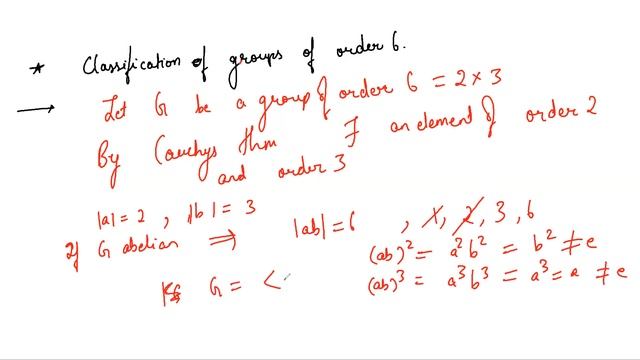 * Classification of groups of order 6.
→ Let G be a group of order 6 = 2 × 3
By Cauchys thm ∃ an element of order 2
and order 3
|a| = 2 , |b| = 3
If G abelian ⇒ |ab| = 6 , 1, 2, 3, 6
(ab)² = a²b² = b² ≠ e
(ab)³ = a³b³ = a³ = a ≠ e
G = <